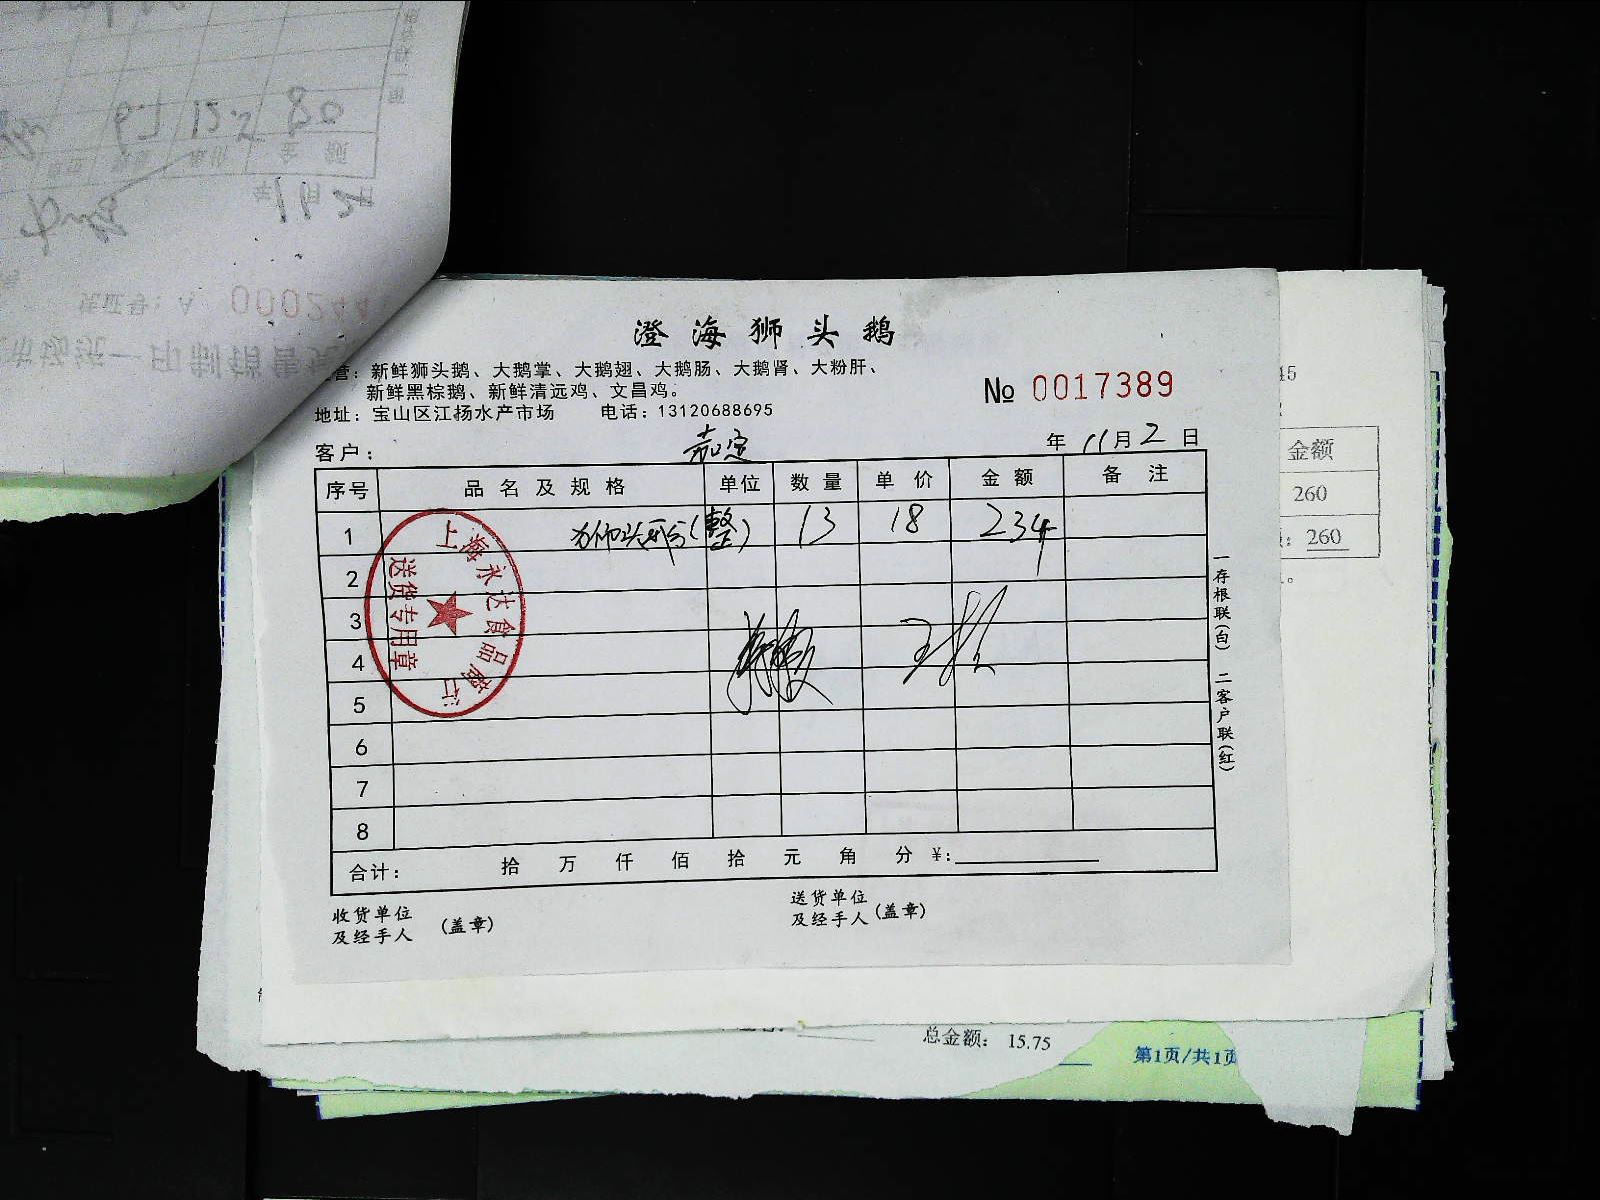 澄海狮头鹅
营：新鲜狮头鹅、大鹅掌、大鹅翅、大鹅肠、大鹅肾、大粉肝、
新鲜黑棕鹅、新鲜清远鸡、文昌鸡。
地址：宝山区江杨水产市场 电话：13120688695
№ 0017389
客户： 嘉定 年 11月 2 日
序号 品名及规格 单位 数量 单价 金额 备注
1 狮头鹅(整) 13 18 234
2
3
4
5
6
7
8
上海永达食品商行
送货专用章
合计： 拾 万 仟 佰 拾 元 角 分 ¥:
收货单位
及经手人 (盖章)
送货单位
及经手人 (盖章)
一存根联(白) 二客户联(红)
45
金额
260
260
总金额： 15.75
第1页/共1页
凭证号：A 000244